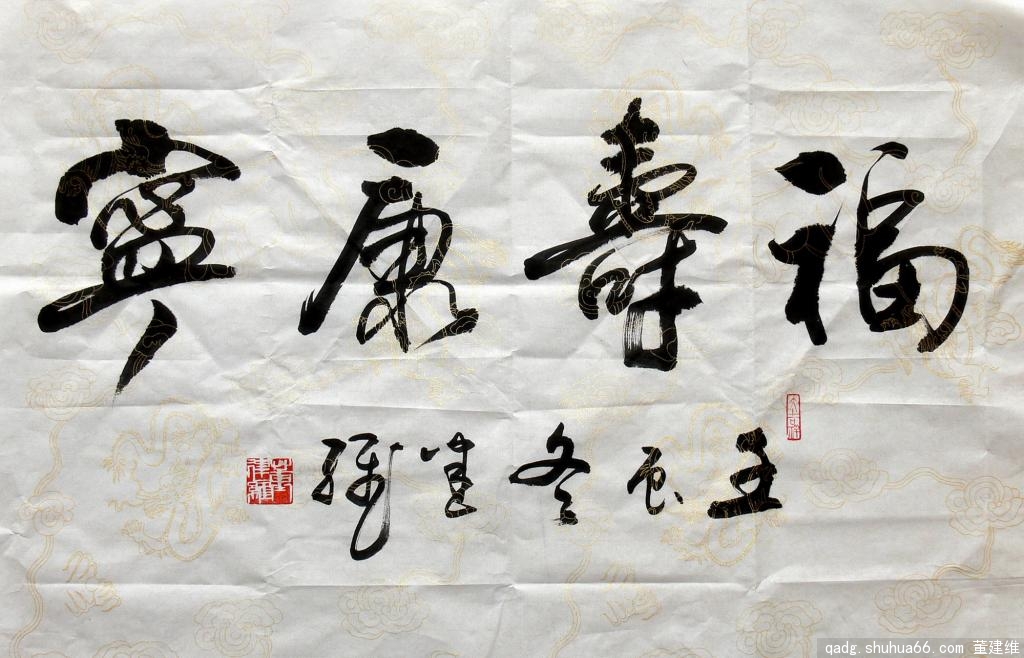 福壽康寧
壬辰冬建維
董建維
qadg.shuhua66.com 董建维